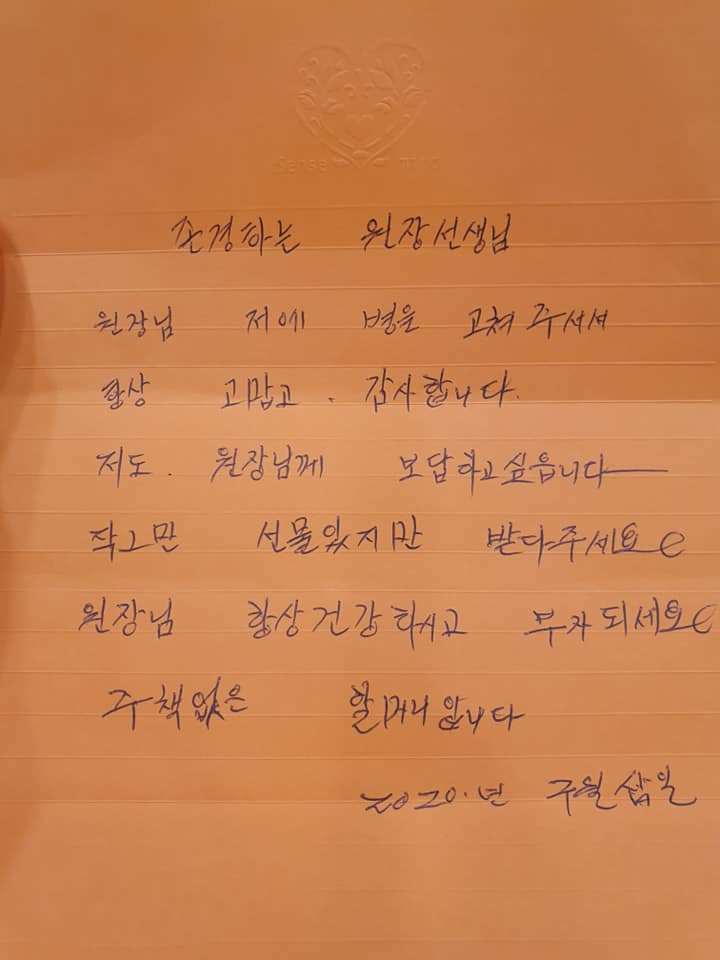 Sense mind
존경하는 원장선생님
원장님 저에 병을 고쳐 주셔셔
항상 고맙고. 감사합니다.
저도. 원장님께 보답하고싶읍니다
작그만 선물있지만 받다주세요
원장님 항상건강하시고 부자되세요
주책없은 할머니압니다
2020.년 구월 삽일